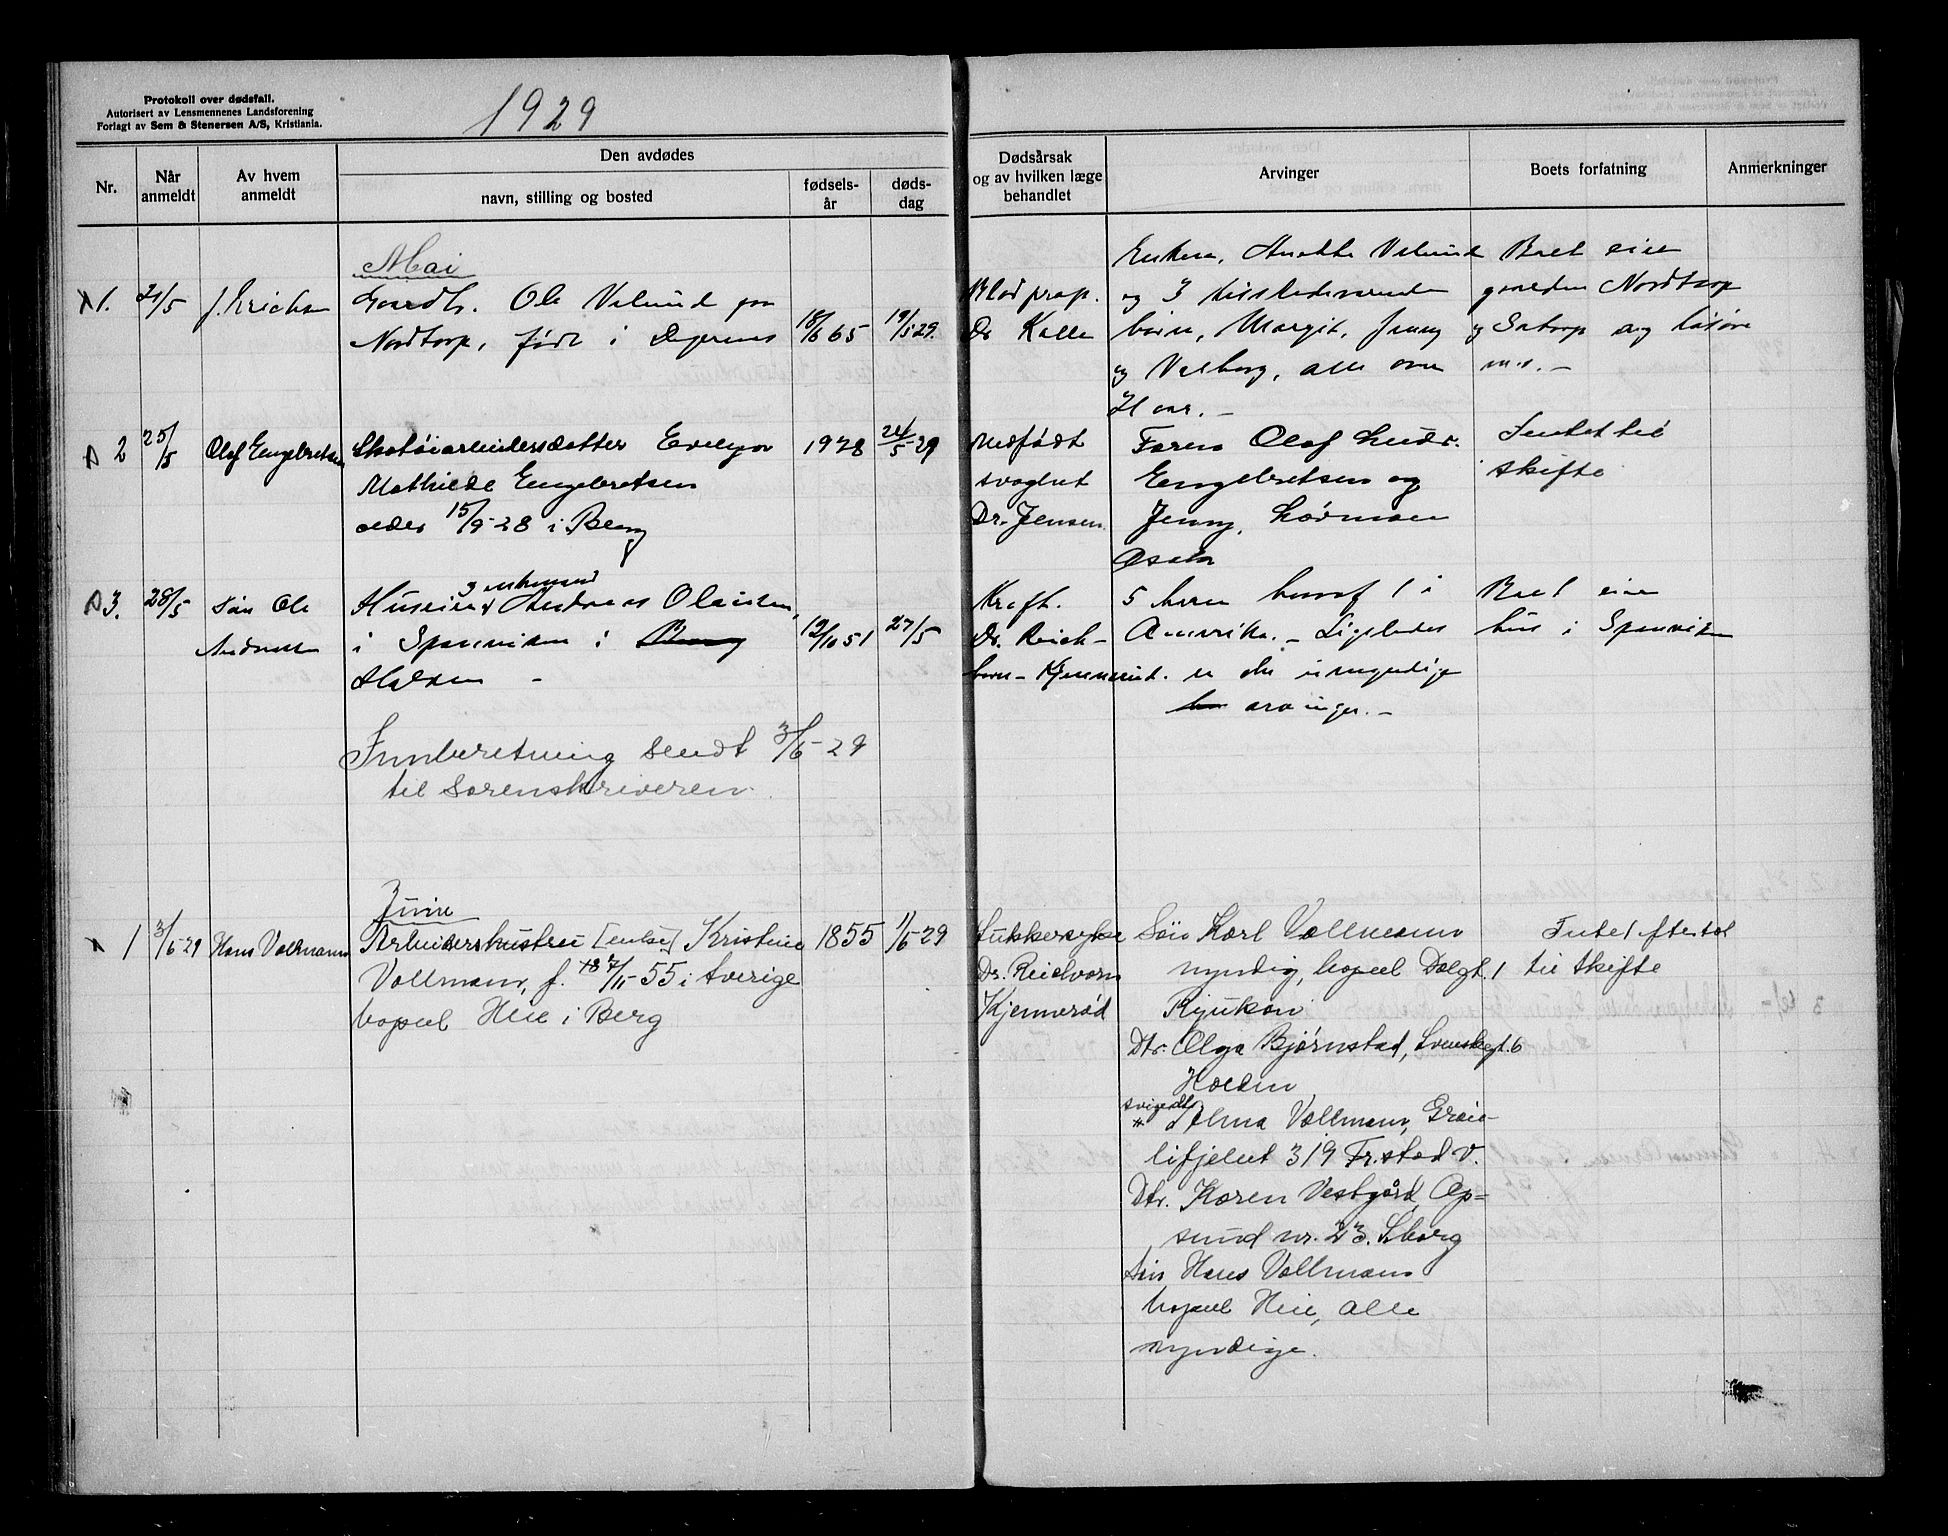 Protokoll over dødsfall.
Autorisert av Lensmennenes Landsforening
Forlagt av Sem & Stenersen A/S, Kristiania.
1929
Nr.
Når anmeldt
Av hvem anmeldt
Den avdødes
navn, stilling og bosted
fødsels-år
døds-dag
Dødsårsak og av hvilken læge behandlet
Arvinger
Boets forfatning
Anmerkninger
Mai
1. 21/5 J. Erichsen
Gaardbr. Ole Velund paa
Nordtorp, født i Degernes
18/6 65 19/5 29.
Blodprop.
Dr Kolle
Enken, Anette Velund
og 3 tilstedeværende
børn, Margit, Jenny
og Valborg, alle over
21 aar. –
Boet eier
gaarden Nordtorp
og Satorp og løsøre
m.v. –
2 25/5 Olaf Engebretsen
Skotøiarbeidersdatter Evelyn
Mathilde Engebretsen
1928 24/5-29
15/9-28 i Berg
Medfødt
svaghet
Dr. Jensen.
Faren Olaf Ludv.
Engebretsen og
Jenny, Lövmoen
Asak
Intet til
skifte
3. 28/5 Søn Ole
Andreassen
Huseier Andreas Olaisen,
i Sponviken i Berg
Halden –
12/10 51 27/5
Kræft.
Dr. Reich-
born-Kjennerud.
5 barn hvoraf 1 i
Amerika. – Ligeledes
er der umyndige
arvinger. –
Boet eier
hus i Sponviken
Innberetning sendt 3/6-29
til Sorenskriveren.
Juni
1 3/6-29 Hans Vollmann
Arbeiderhustru [enke] Kristine
Vollmann, f. 7/11-55 i Sverige
bopæl Hue i Berg
1855 1/6-29
Sukkersyke
Dr. Reichborn
Kjennerød
Søn Karl Vollmann
myndig, bopæl Dalgt. 1
Rjukan
Dtr. Olga Bjørnstad, Svenskegt. 6
Halden
svigerdtr
" Alma Vollmann, Graa-
lifjelet 319 Fr.stad V.
Dtr. Karen Vestgård, Op-
sund nr. 23. S.borg
Søn Hans Vollmann
bopæl Hue, alle
myndige.
Intet efterlat
til skifte